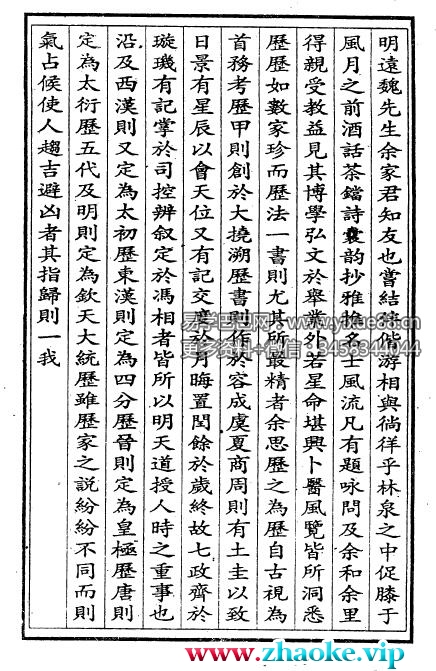 明遠魏先生余家君知友也嘗結
游相與徜徉乎林泉之中促膝于
風月之前酒話茶鐺詩囊韵抄雅擔名士風流凡有題咏問及余和余里
得親受教益見其博學弘文於舉業外若星命堪輿卜醫風覽皆所洞悉
歷歷如數家珍而歷法一書則尤其所最精者余思歷之為歷自古視為
首務考歷甲則創於大撓溯歷書則作於容成虞夏商周則有土圭以致
日景有星辰以會天位又有記交度於月晦置閏餘於歲終故七政齊於
璇璣有記掌於司控辨叙定於馮相者皆所以明天道授人時之重事也
沿及西漢則又定為太初歷東漢則定為四分歷晉則定為皇極歷唐則
定為太衍歷五代及明則定為欽天大統歷雖歷家之說紛紛不同而則
氣占候使人趨吉避凶者其指歸則一我
易学巴巴网www.yixue88.cn
www.zhaoke.vip